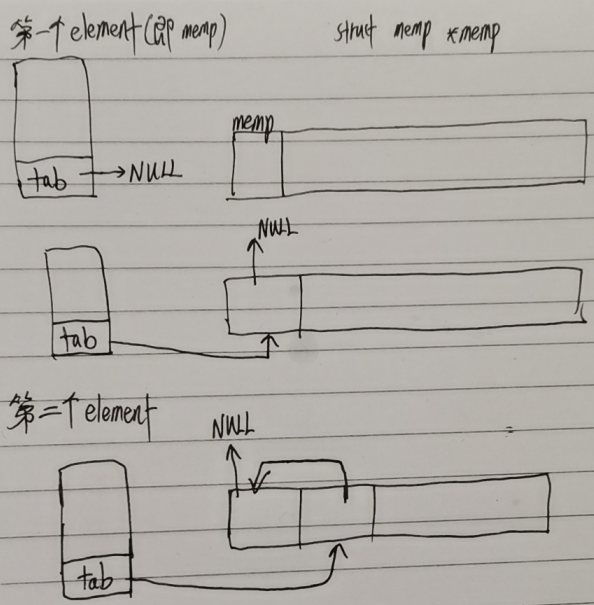 第一个element(即memp)
struct memp *memp
memp
tab → NULL
NULL
tab
第二个element
NULL
tab